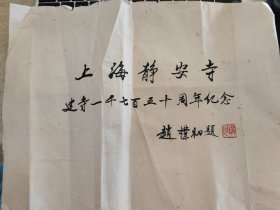 上海静安寺
建寺一千七百五十周年纪念
趙樸初題